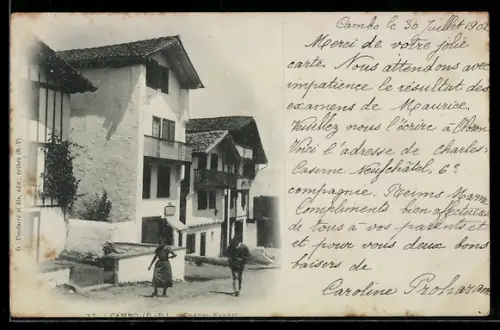 Cambo le 30 Juillet 1902
Merci de votre jolie
carte. Nous attendons avec
impatience le résultat des
examens de Maurice.
Veuillez nous l'écrire à
Voici l'adresse de Charles:
Caserne Neufchâtel, 6e
compagnie. Reims Marne
Compliments bien affectueux
de tous à vos parents et
et pour vous deux bons
baisers de
Caroline
édit., Orthez (B.-P.)
CAMBO (B.-P.)